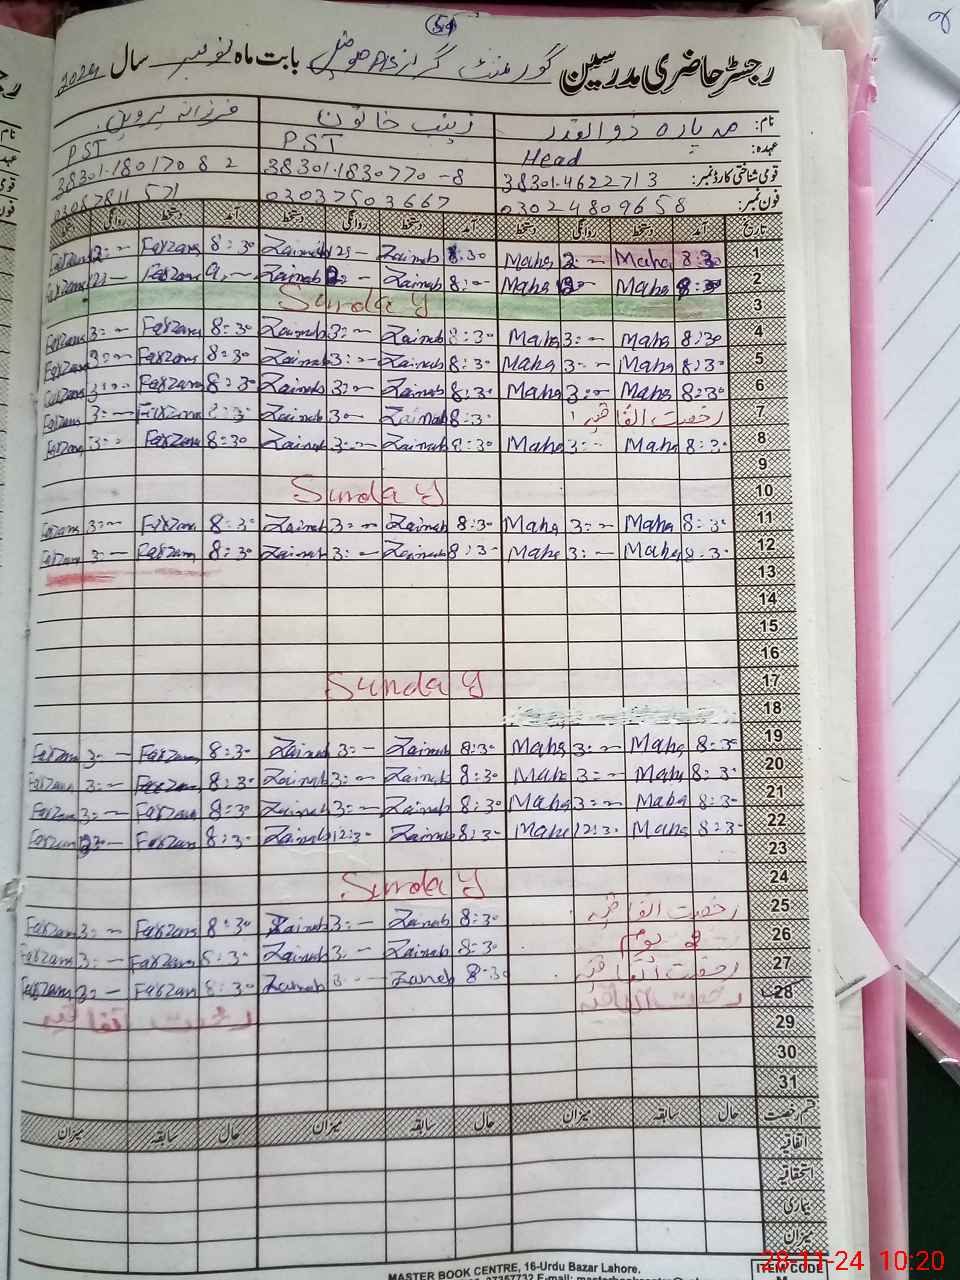 51
رجسٹر حاضری مدرسین گورنمنٹ گرلز P/S بابت ماہ نومبر سال 2024
نام: مہ پارہ ذوالقدر زینب خاتون فرزانہ پروین
عہدہ: Head PST PST
قومی شناختی کارڈ نمبر: 38301-4622713 38301-1830770-8 38301-1801708 2
فون نمبر: 03024809658 03037503667
تاریخ آمد دستخط روانگی دستخط آمد دستخط روانگی دستخط آمد دستخط روانگی
1 8:30 Maha 2:- Maha 8:30 Zainab Zainab 8:30 Farzana
2 Maha Maha 8:- Zainab Zainab 9:- Farzana
3 Sunday
4 8:30 Maha 3:- Maha 8:30 Zainab 3:- Zainab 8:30 Farzana 3:- Farzana
5 8:30 Maha 3:- Maha 8:30 Zainab 3:- Zainab 8:30 Farzana 3:- Farzana
6 8:30 Maha 3:- Maha 8:30 Zainab 3:- Zainab 8:30 Farzana 3:- Farzana
7 رخصت اتفاقیہ 8:30 Zainab 3:- Zainab 8:30 Farzana 3:- Farzana
8 8:30 Maha 3:- Maha 8:30 Zainab 3:- Zainab 8:30 Farzana 3:- Farzana
9
10 Sunday
11 8:30 Maha 3:- Maha 8:30 Zainab 3:- Zainab 8:30 Farzana 3:- Farzana
12 8:30 Maha 3:- Maha 8:30 Zainab 3:- Zainab 8:30 Farzana 3:- Farzana
13
14
15
16
17 Sunday
18
19 8:30 Maha 3:- Maha 8:30 Zainab 3:- Zainab 8:30 Farzana 3:- Farzana
20 8:30 Maha 3:- Maha 8:30 Zainab 3:- Zainab 8:30 Farzana 3:- Farzana
21 8:30 Maha 3:- Maha 8:30 Zainab 3:- Zainab 8:30 Farzana 3:- Farzana
22 8:30 Maha 12:30 Maha 8:30 Zainab 12:30 Zainab 8:30 Farzana Farzana
23
24 Sunday
25 رخصت اتفاقیہ 8:30 Zainab 3:- Zainab 8:30 Farzana 3:- Farzana
26 یوم 8:30 Zainab 3:- Zainab 8:30 Farzana 3:- Farzana
27 رخصت اتفاقیہ 8:30 Zainab 3:- Zainab 8:30 Farzana 3:- Farzana
28 رخصت اتفاقیہ رخصت اتفاقیہ
29
30
31
قسم رخصت حال سابقہ میزان حال سابقہ میزان حال سابقہ میزان
اتفاقیہ
استحقاقیہ
بیماری
میزان
MASTER BOOK CENTRE, 16-Urdu Bazar Lahore.
ITEM CODE
28-11-24 10:20